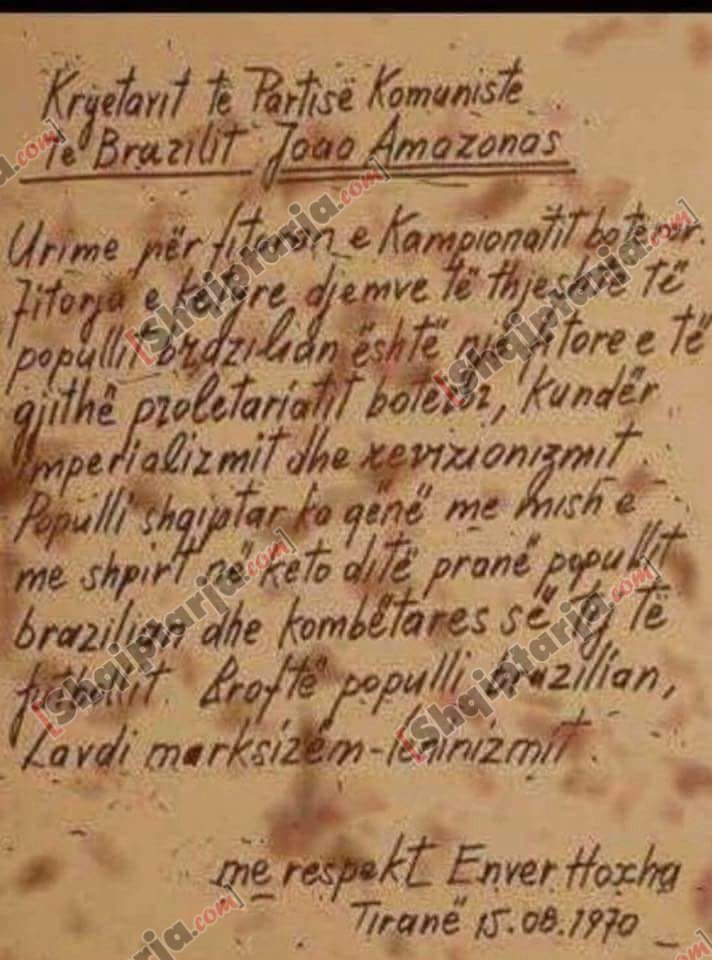 Kryetarit të Partisë Komuniste
të Brazilit Joao Amazonas
Urime për fitoren e Kampionatit botëror.
Fitorja e këtyre djemve të thjeshtë të
popullit brazilian është një fitore e të
gjithë proletariatit botëror, kundër
imperializmit dhe revizionizmit.
Populli shqiptar ka qënë me mish e
me shpirt në keto ditë pranë popullit
brazilian dhe kombëtares së tij të
futbollit. Rroftë populli brazilian,
Lavdi marksizëm-leninizmit.
me respekt Enver Hoxha
Tiranë 15.08.1970
[Shqiptarja.com]
[Shqiptarja.com]
[Shqiptarja.com]
[Shqiptarja.com]
[Shqiptarja.com]
[Shqiptarja.com]